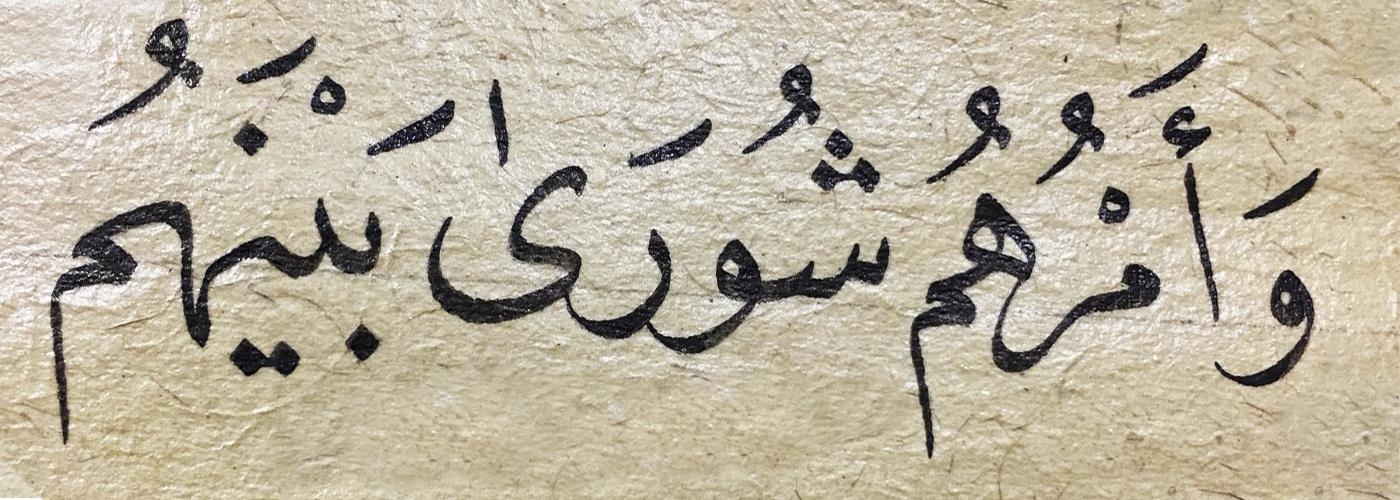 وَأَمْرُهُمُ شُورَىٰ بَيْنَهُمُ